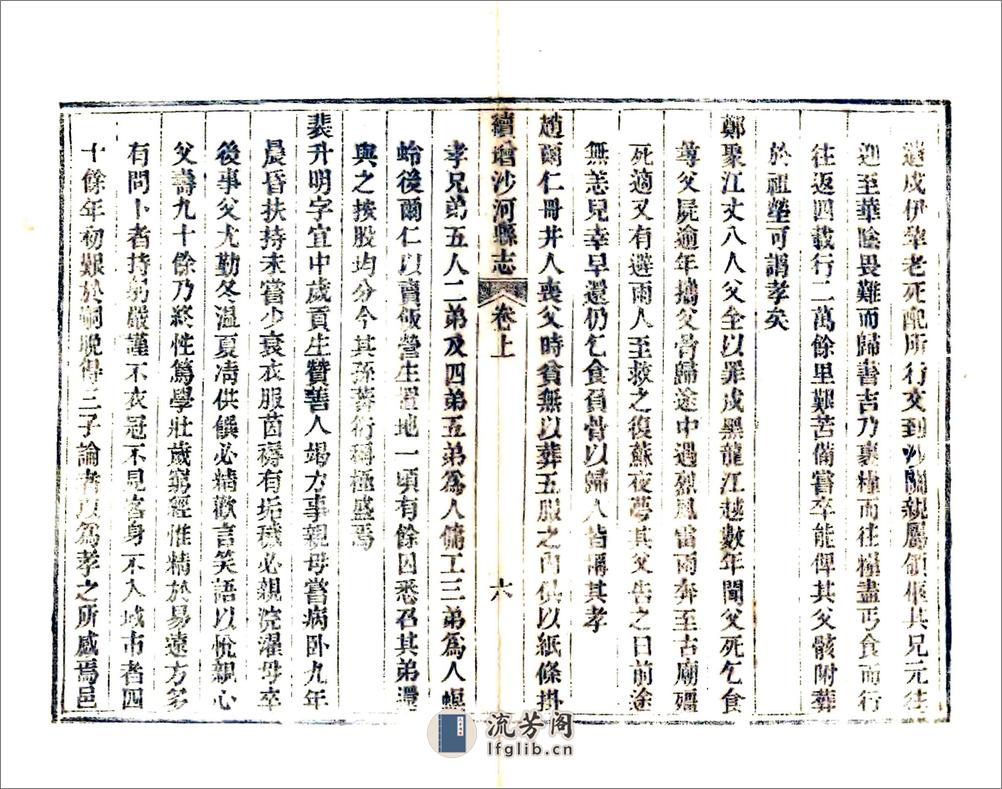 遠戍伊犂老死配所行文到沙關親屬領柩其兄元往
迎至華陰畏難而歸書吉乃裹糧而往糧盡丐食而行
往返四載行二萬餘里艱苦備嘗卒能俾其父骸附葬
於祖塋可謂孝矣
鄭聚江丈八人父全以罪戍黑龍江越數年聞父死乞食
尋父屍逾年攜父骨歸途中遇烈風雷雨奔至古廟殭
死適又有避雨人至救之復蘇夜夢其父告之曰前途
無恙兒幸早還仍乞食負骨以歸人皆稱其孝
趙爾仁冊井人喪父時貧無以葬五服之內供以紙條掛
續增沙河縣志 卷上 六
孝兄弟五人二弟及四弟五弟爲人傭工三弟爲人螟
蛉後爾仁以賣飯營生置地一頃有餘因悉召其弟還
與之按股均分今其孫蕃衍稱極盛焉
裴升明字宜中歲貢生贊善人竭力事親母嘗病卧九年
晨昏扶持未嘗少衰衣服茵褥有垢穢必親浣濯母卒
後事父尤勤冬溫夏凊供饌必精歡言笑語以悅親心
父壽九十餘乃終性篤學壯歲窮經惟精於易遠方多
有問卜者持躬嚴謹不衣冠不見客身不入城市者四
十餘年初艱於嗣晚得三子論者以爲孝之所感焉邑
流芳阁
lfglib.cn